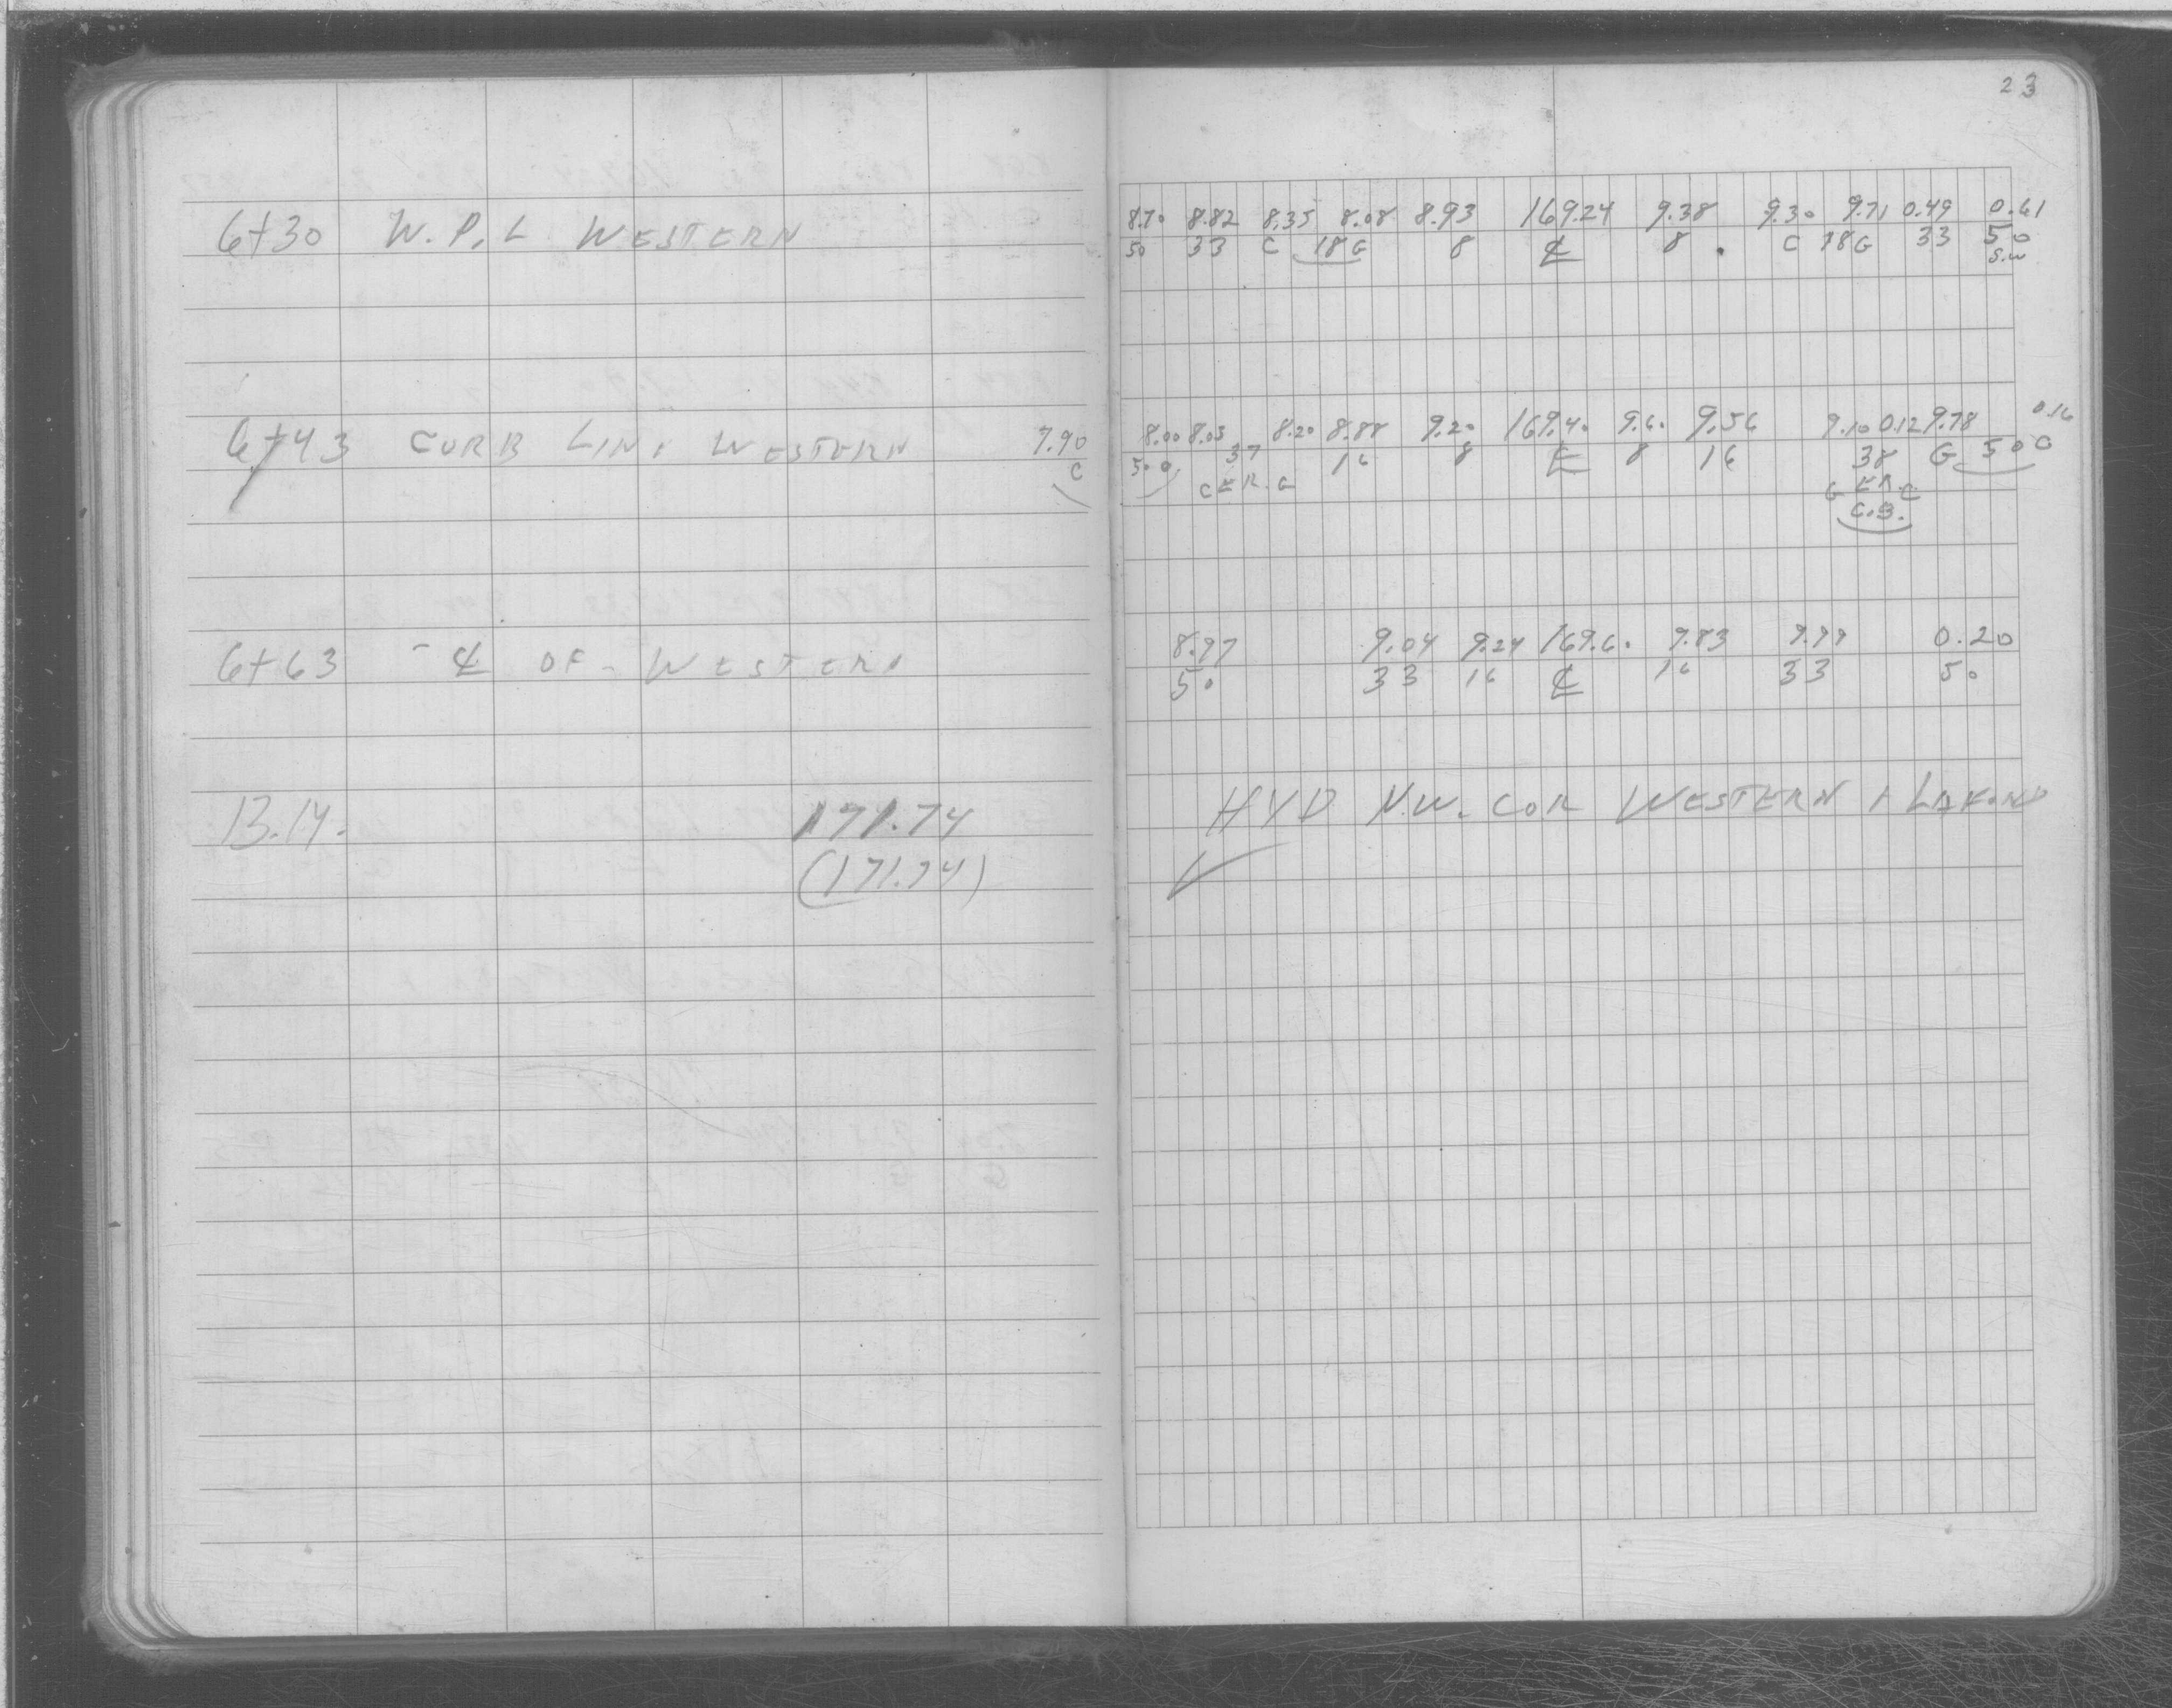 23
6+30 W.P.L WESTERN
8.70 8.82 8.35 8.08 8.93 169.24 9.38 9.30 9.71 0.49 0.61
50 33 C 18G 8 ℄ 8 C 18G 33 50
S.W
6+43 CURB LINE WESTERN 7.90
C
8.00 8.03 8.20 8.88 9.20 169.40 9.60 9.56 9.10 0.12 9.78 0.16
500 37 16 8 ℄ 8 16 38 G 50 C
C ER. G
G ER C
C.B.
6+63 - ℄ OF - WESTERN
8.97 9.04 9.24 169.60 9.83 9.99 0.20
50 33 16 ℄ 16 33 50
13.14. 171.74
(171.74)
HYD N.W. COR WESTERN +